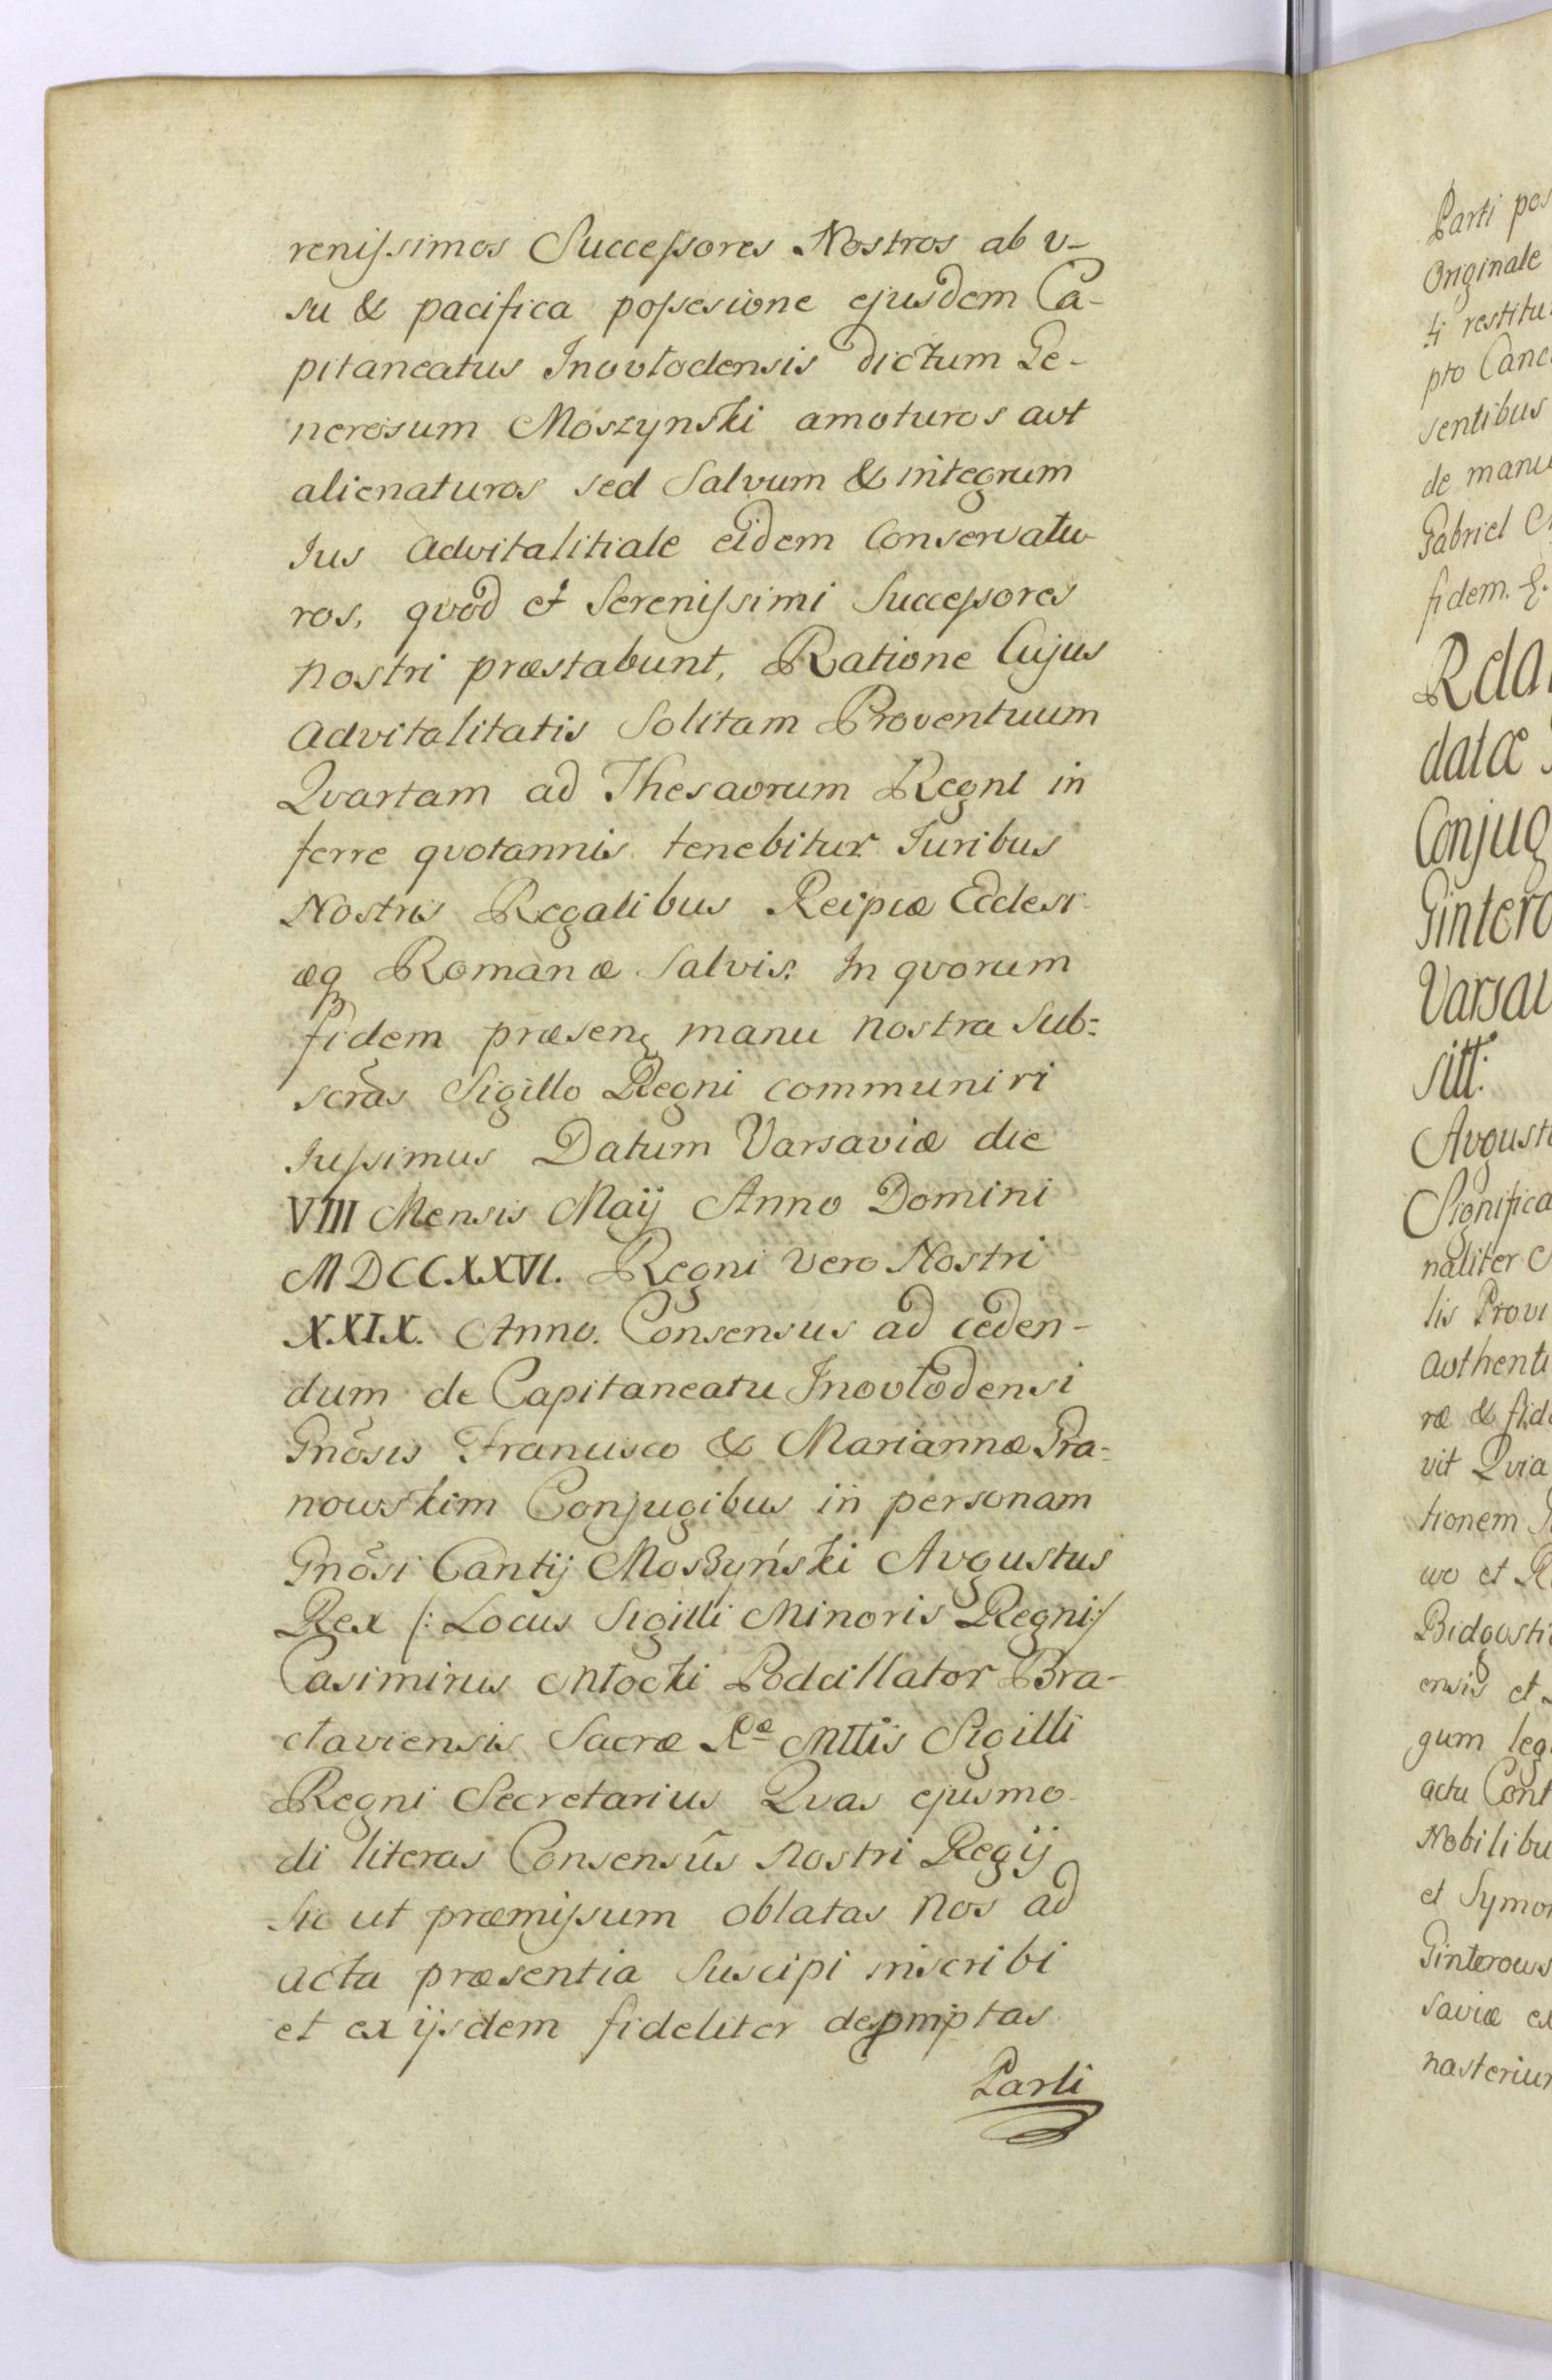 renissimos Successores Nostros ab v-
su & pacifica possesione ejusdem Ca-
pitaneatus Inovłodensis dictum Ge-
nerosum Moszynski amoturos avt
alienaturos sed Salvum & integrum
Ius Advitalitiale eidem Conservatu-
ros, quod et Serenissimi Successores
nostri præstabunt, Ratione Cujus
Advitalitatis Solitam Proventuum
Qvartam ad Thesavrum Regni in
ferre qvotannis tenebitur Iuribus
Nostris Regalibus Reipcæ Ecclesi
æq Romanæ Salvis. In qvorum
fidem præsens manu nostra Sub=
scrãs Sigillo Regni communiri
Iussimus Datum Varsaviæ die
VIII Mensis Maij Anno Domini
MDCCXXVI. Regni Vero Nostri
XXIX. Anno. Consensus ad ceden-
dum de Capitaneatu Inovłodensi
Gnõsis Francisco & Mariannæ Gra=
nowskim Conjugibus in personam
Gnõsi Cantij Moszyński Avgustus
Rex /: Locus Sigilli Minoris Regni:/
Casimirus Młocki Podcillator Bra-
claviensis Sacræ Ræ Mttis Sigilli
Regni Secretarius Qvas ejusmo-
di literas Consensûs nostri Regij
Sic ut præmissum oblatas Nos ad
acta præsentia Suscipi inscribi
et ex ijsdem fideliter depmptas
Parti
Parti pos
Originale
ti restitu
pto Canc
sentibus
de manu
Gabriel
fidem.
Rela
datæ
Conjug
Gintero
Varsav
sitt:
Avgust
Significa
naliter
lis Provi
avthenti
ræ & fid
vit Qvia
tionem
wo et R
Bidgosti
ensis et
gum leg
actu Cont
Nobilibu
et Symon
Ginterows
saviæ ex
nasterium